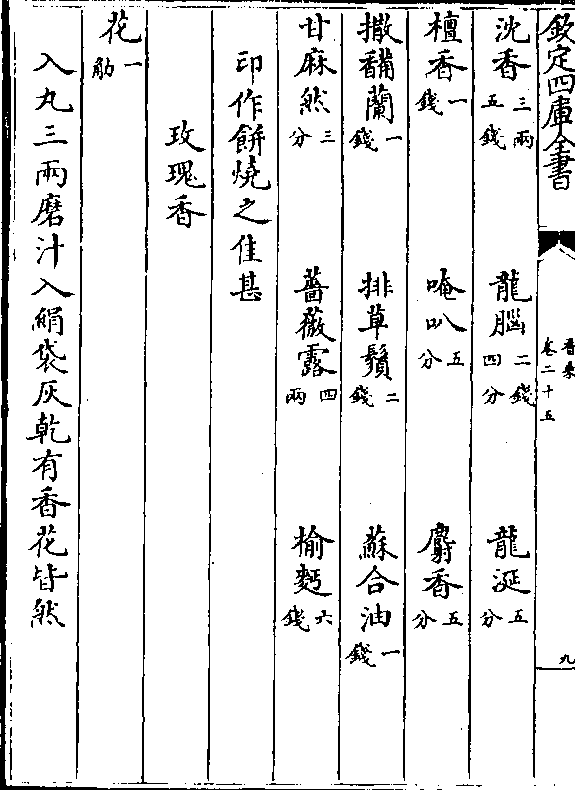 欽定四庫全書
香乘
卷二十五
九
沈香三兩五錢 龍腦二錢四分 龍涎五分
檀香一錢 唵叭五分 麝香五分
撒𩡝蘭一錢 排草鬚二錢 蘇合油一錢
甘麻然三分 薔薇露四兩 榆麪六錢
印作餅燒之佳甚
玫瑰香
花一觔
入丸三兩磨汁入絹袋灰乾有香花皆然